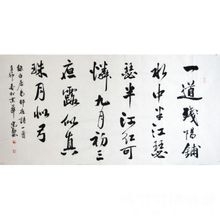 一道残陽铺
水中半江瑟
瑟半江红可
憐九月初三
夜露似真
珠月似弓